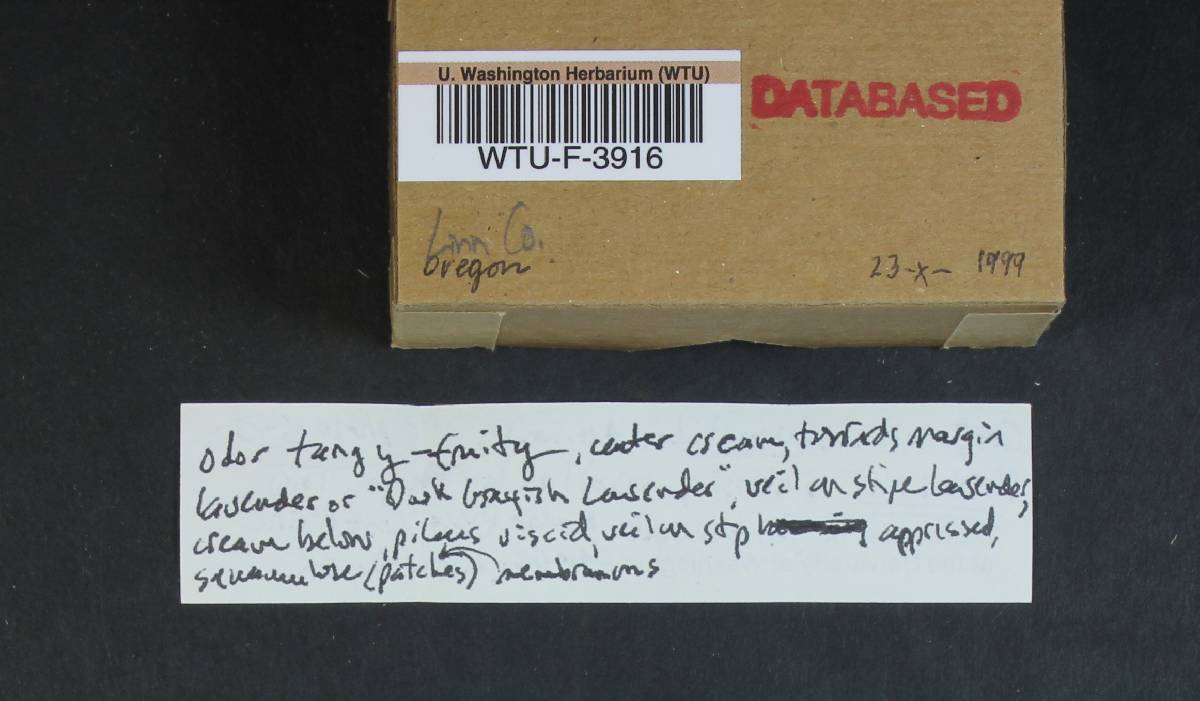 U. Washington Herbarium (WTU)
DATABASED
WTU-F-3916
Linn Co.
Oregon
23-x- 1999
odor tangy-fruity, center cream, towards margin
lavender or "Dark Grayish Lavender", veil on stipe lavender,
cream below, pileus viscid, veil on stp appressed,
squamulose (patches) membranous